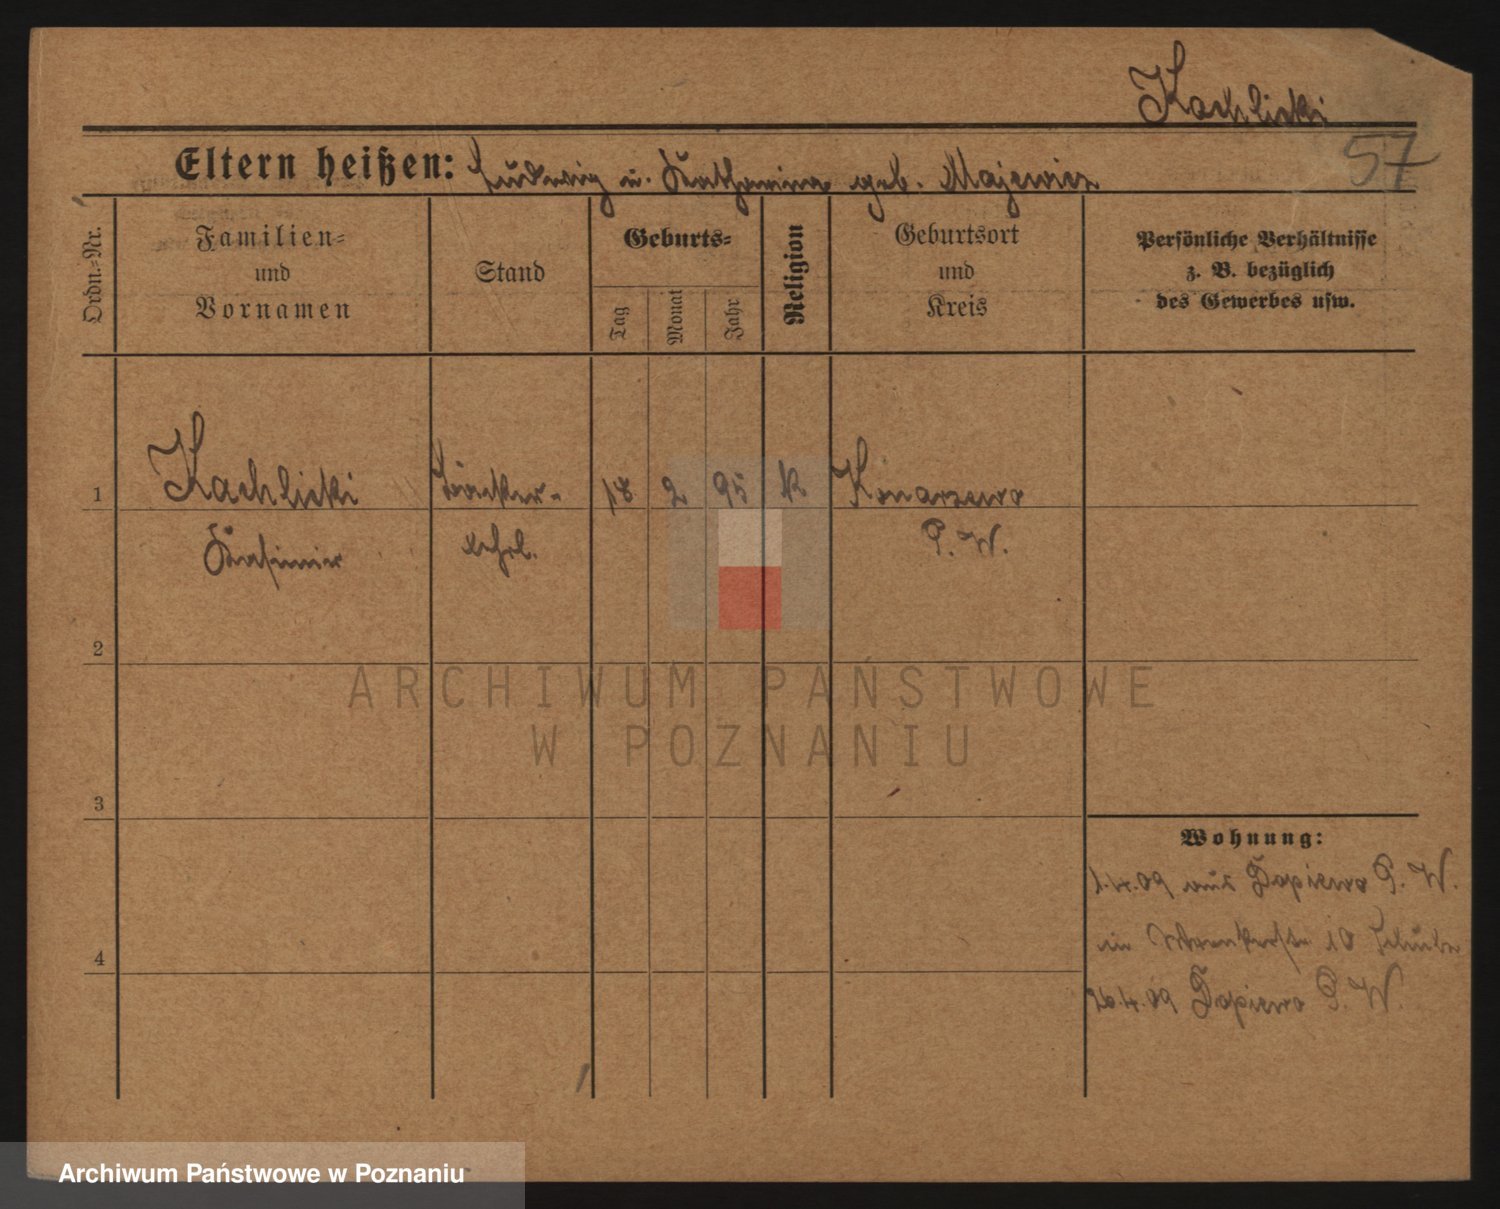 Kachlicki
57
Eltern heißen: Ludwig u. Katharina geb. Majewicz
Ordn.-Nr.
Familien-
und
Vornamen
Stand
Geburts-
Tag
Monat
Jahr
Religion
Geburtsort
und
Kreis
Persönliche Verhältnisse
z. B. bezüglich
des Gewerbes usw.
1
Kachlicki
Kasimir
Bäcker-
lehrl.
18
2
95
k
Konarzewo
P. W.
2
ARCHIWUM PAŃSTWOWE
W POZNANIU
3
Wohnung:
1.4.09 aus Dopiewo P. W.
in 10
26.4.09 Dopiewo P. W.
4
Archiwum Państwowe w Poznaniu